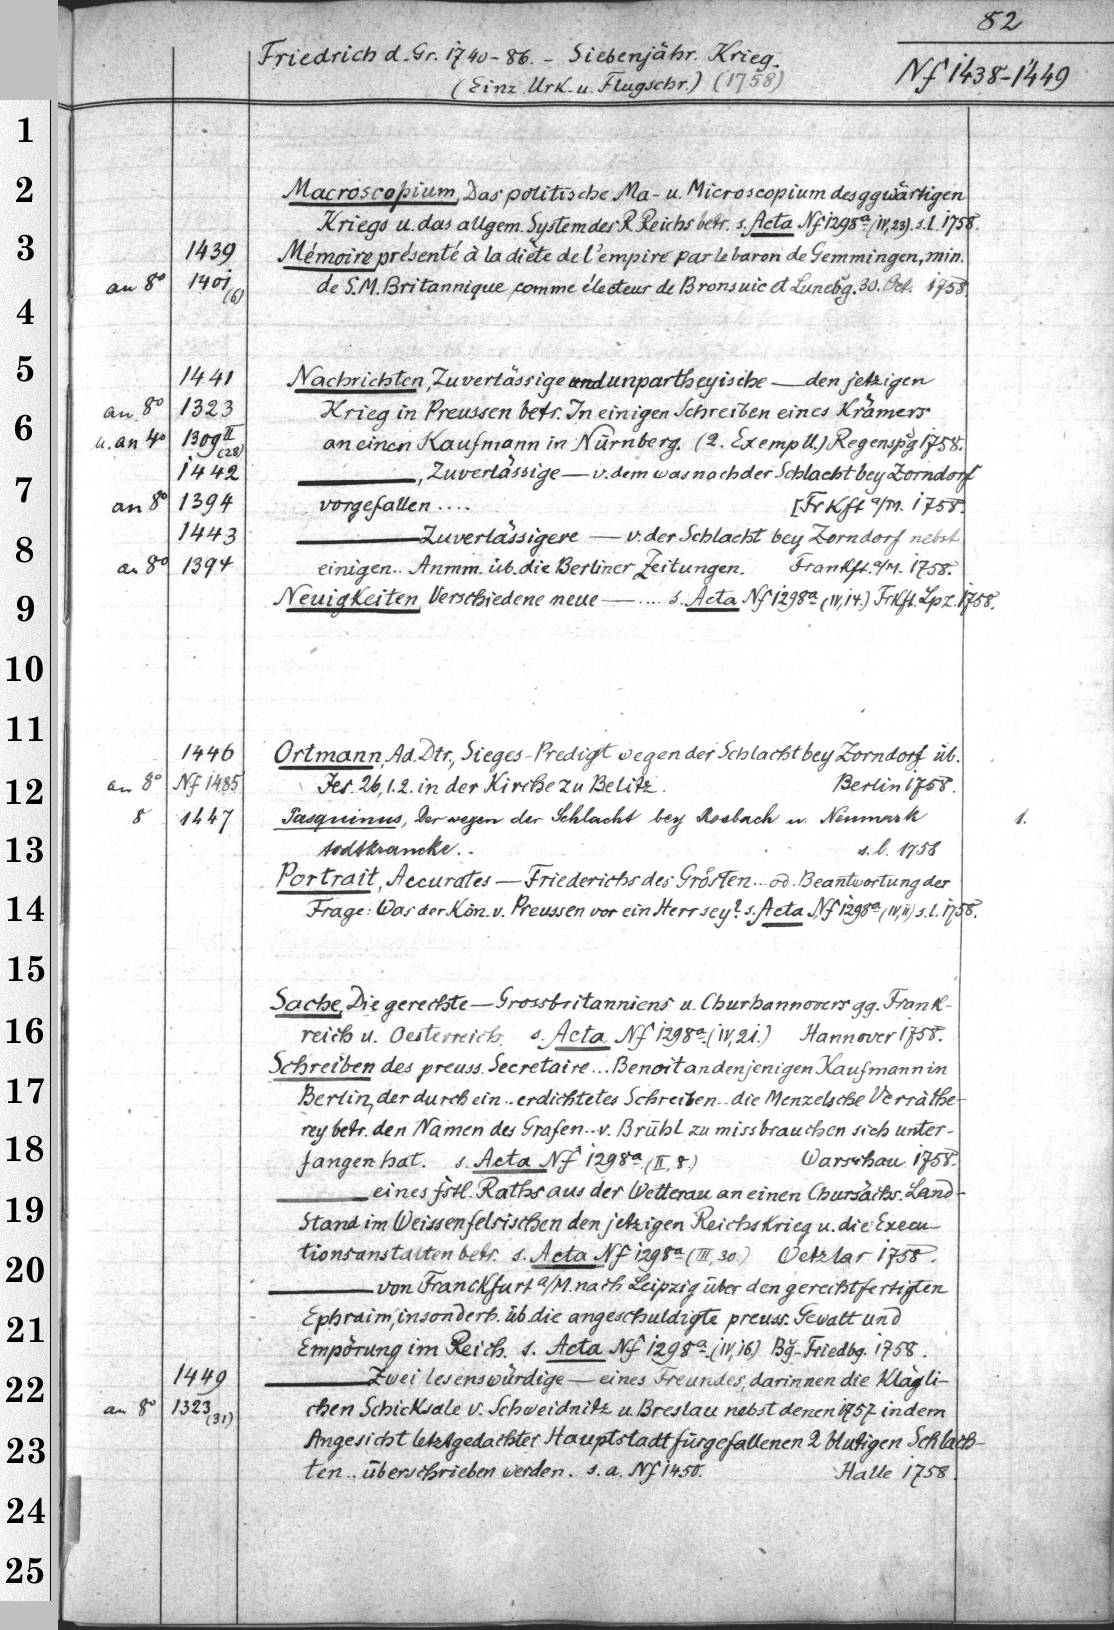 82
Friedrich d. Gr. 1740-86. - Siebenjähr. Krieg.
Nf 1438-1449
(Einz. Urk. u. Flugschr.) (1758)
1
2
3
4
5
6
7
8
9
10
11
12
13
14
15
16
17
18
19
20
21
22
23
24
25
Macroscopium, Das politische Ma- u. Microscopium des ggwärtigen
Kriegs u. das allgem. System des R. Reichs betr. s. Acta Nf 1298a (IV,23). s.l. 1758.
1439 Mémoire présenté à la diète de l'empire par le baron de Gemmingen, min.
an 8o 1401 (6) de S.M. Britannique comme électeur de Bronsuic et Lunebg. 30. Oct. 1758.
1441 Nachrichten, Zuverlässige und unpartheyische — den jetzigen
an 8o 1323 Krieg in Preussen betr. In einigen Schreiben eines Krämers
u. an 4o 1309 II (28) an einen Kaufmann in Nürnberg. (2. Exempll.) Regenspg 1758.
1442 ———, Zuverlässige — v. dem was nach der Schlacht bey Zorndorf
an 8o 1394 vorgefallen .... [Frkft a/M. 1758.
1443 ——— Zuverlässigere — v. der Schlacht bey Zorndorf nebst
an 8o 1394 einigen .. Anmm. üb. die Berliner Zeitungen. Frankft. a/M. 1758.
Neuigkeiten Verschiedene neue — .... s. Acta Nf 1298a (IV,14.) Frkft. Lpz. 1758.
1446 Ortmann, Ad. Dtr., Sieges-Predigt wegen der Schlacht bey Zorndorf üb.
an 8o Nf 1485 Jes. 26,1.2. in der Kirche zu Belitz. Berlin 1758.
8 1447 Pasquinus, Der wegen der Schlacht bey Rosbach u. Neumark 1.
todtkrancke .. s. l. 1758
Portrait, Accurates — Friederichs des Grösten ... od. Beantwortung der
Frage: Was der Kön. v. Preussen vor ein Herr sey? s. Acta Nf 1298a (IV,11) s.l. 1758.
Sache, Die gerechte — Grossbritanniens u. Churhannovers gg. Frank-
reich u. Oesterreich. s. Acta Nf 1298a (IV,21.) Hannover 1758.
Schreiben des preuss. Secretaire ... Benoit an denjenigen Kaufmann in
Berlin, der durch ein .. erdichtetes Schreiben .. die Menzelsche Verräthe-
rey betr. den Namen des Grafen .. v. Brühl zu missbrauchen sich unter-
fangen hat. s. Acta Nf 1298a (II,8.) Warschau 1758.
——— eines fstl. Raths aus der Wetterau an einen Chursächs. Land-
Stand im Weissenfelsischen den jetzigen Reichskrieg u. die Execu-
tionsanstalten betr. s. Acta Nf 1298a (III,30.) Wetzlar 1758.
——— von Franckfurt a/M. nach Leipzig über den gerechtfertigten
Ephraim, insonderh. üb. die angeschuldigte preuss. Gewalt und
Empörung im Reich. s. Acta Nf 1298a (IV,16) Bg-Friedbg. 1758.
1449 ——— Zwei lesenswürdige — eines Freundes, darinnen die klägli-
an 8o 1323 (31) chen Schicksale v. Schweidnitz u. Breslau nebst denen 1757 in dem
Angesicht letztgedachter Hauptstadt fürgefallenen 2 blutigen Schlach-
ten .. überschrieben werden. s. a. Nf 1450. Halle 1758.